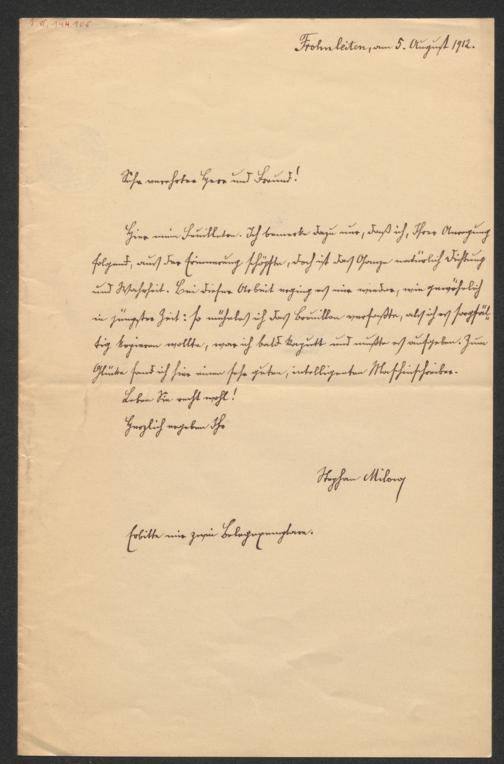 Frohnleiten, am 5. August 1912.
Sehr verehrter Herr und Freund!
Hier mein Feuilleton. Ich bemerke dazu nur, daß ich, Ihrer Anregung
folgend, aus der Erinnerung schöpfte, doch ist das Ganze natürlich Dichtung
und Wahrheit. Bei dieser Arbeit erging es mir wieder, wie gewöhnlich
in jüngster Zeit: so mühelos ich das Brouillon verfaßte, als ich es sorgfäl-
tig kopieren wollte, war ich bald kaputt und mußte es aufgeben. Zum
Glücke fand ich hier einen sehr guten, intelligenten Maschinschreiber.
Leben Sie recht wohl!
Herzlich ergeben Ihr
Stephan Milow
Erbitte mir zwei Belegexemplare.